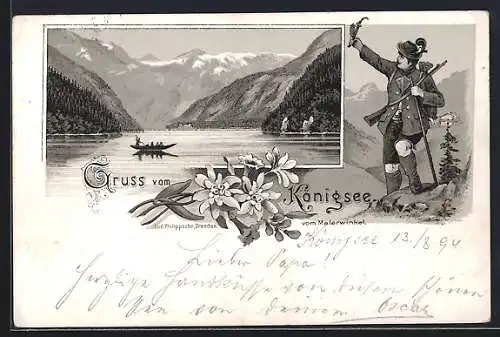 Gruss vom Königsee.
vom Malerwinkel.
Rud. Philippsohn, Dresden.
Königsee 13/8 94
Lieber Papa!
Herzliche Handküsse von diesem schönen
See von deinem Oscar